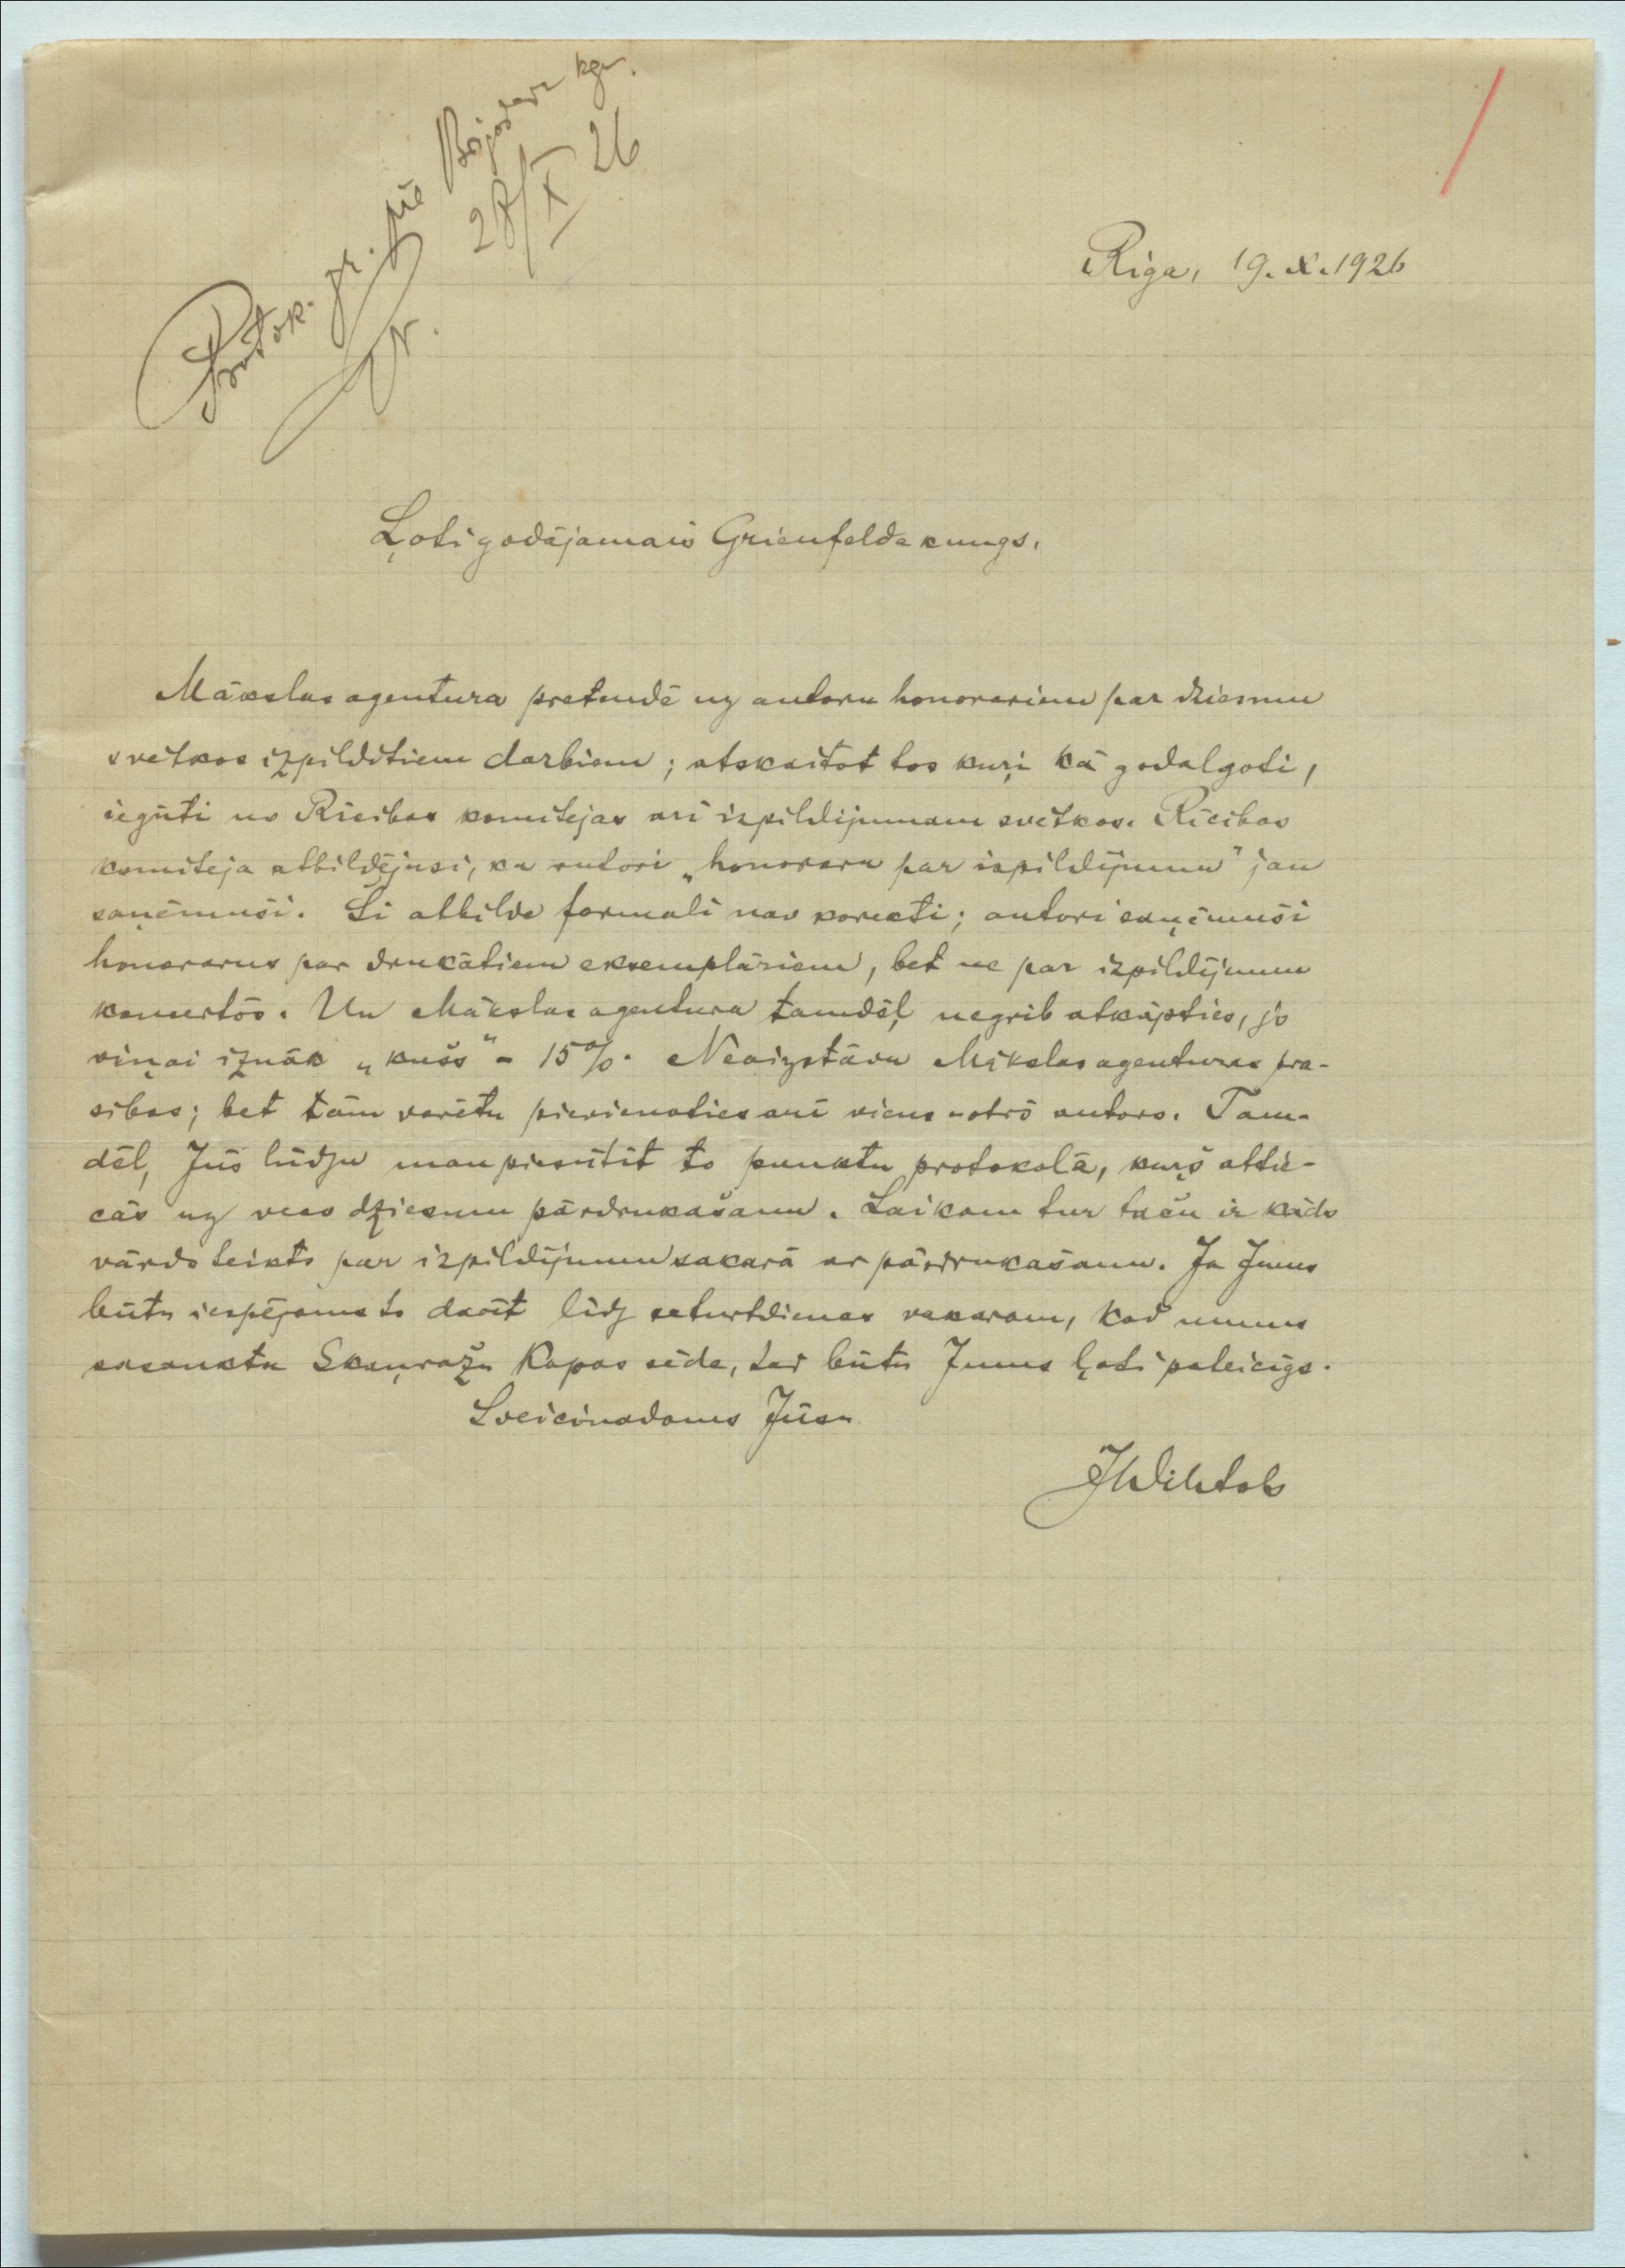 Protok. gr. pie
kgr.
28/X 26
Riga, 19.X.1926
Ļoti godājamais Grienfelda kungs,
Mākslas agentura pretendē uz autoru honorariem par dziesmu
svētkos izpildītiem darbiem; atskaitot tos kuŗi kā godalgoti,
iegūti no Rīcibas komitejas arī izpildijumam svētkos. Rīcibas
komiteja atbildējusi, ka autori „honoraru par izpildījumu" jau
saņēmuši. Šī atbilde formali nav korekti; autori saņēmuši
honorarus par drukātiem eksemplāriem, bet ne par izpildījumu
koncertos. Un Mākslas agentura tamdēļ negrib atkāpties, jo
viņai iznāk „kušs" - 15%. Neaizstāvu Mākslas agenturas pra-
sibas; bet tām varētu pievienoties arī viens otrs autors. Tam-
dēļ, Jūs lūdzu man piesūtīt to punktu protokolā, kuŗš attie-
cās uz veco dziesmu pārdrukašanu. Laikam tur taču ir kāds
vārds teikts par izpildījumu sakarā ar pārdrukašanu. Ja Jums
būtu iespējams to darīt līdz ceturtdienas vakaram, kad mums
sasaukta Skaņražu Kopas sēde, tad būtu Jums ļoti pateicīgs.
Sveicinadams Jūsu
JWihtols